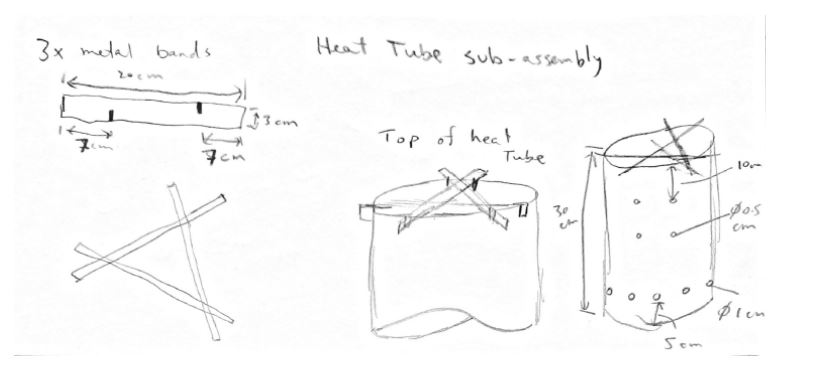 3x metal bands
20cm
3cm
7cm
7cm
Heat Tube sub-assembly
Top of heat
Tube
30
cm
10cm
Ø0.5
cm
Ø1cm
5cm